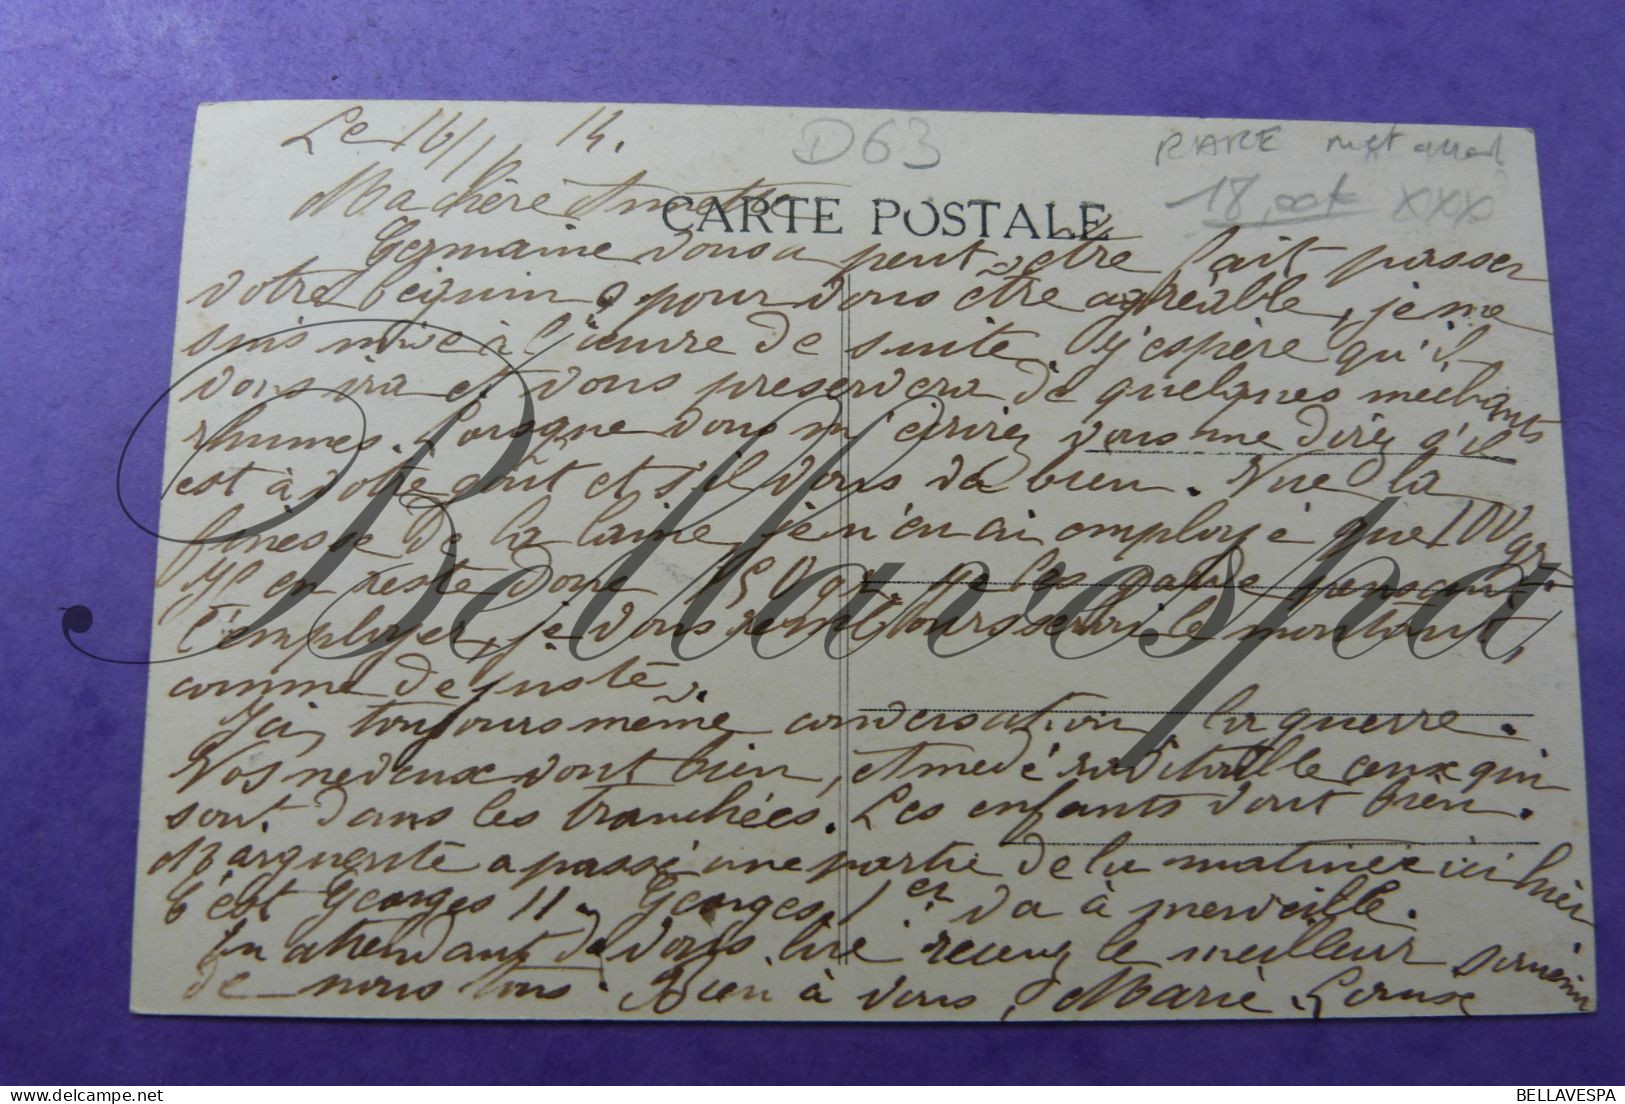 Le 16/1 14.
D63
RARE
18,00€ XXX
CARTE POSTALE
Ma chère
Germaine vous a peut-être fait passer
votre béguin, pour vous être agréable, je me
suis mise à l'œuvre de suite. J'espère qu'il
vous ira et vous preservera de quelques méchants
rhumes. Lorsque vous m'écrirez vous me direz s'il
est à votre goût et s'il vous va bien. Vue la
finesse de la laine, je n'en ai employé que 100 gr.
Il en reste donc 150 gr. je les garde pensant
l'employer, je vous rembourserai le montant,
comme de juste.
Ici, toujours même conversation, la guerre.
Vos neveux vont bien, Amedé ravitaille ceux qui
sont dans les tranchées. Les enfants vont bien.
Marguerite a passé une partie de la matinée ici hier
c'est Georges II. Georges 1er va à merveille.
En attendant de vous lire recevez le meilleur souvenir
de nous tous. Bien à vous, Marie
Bellavespa
BELLAVESPA